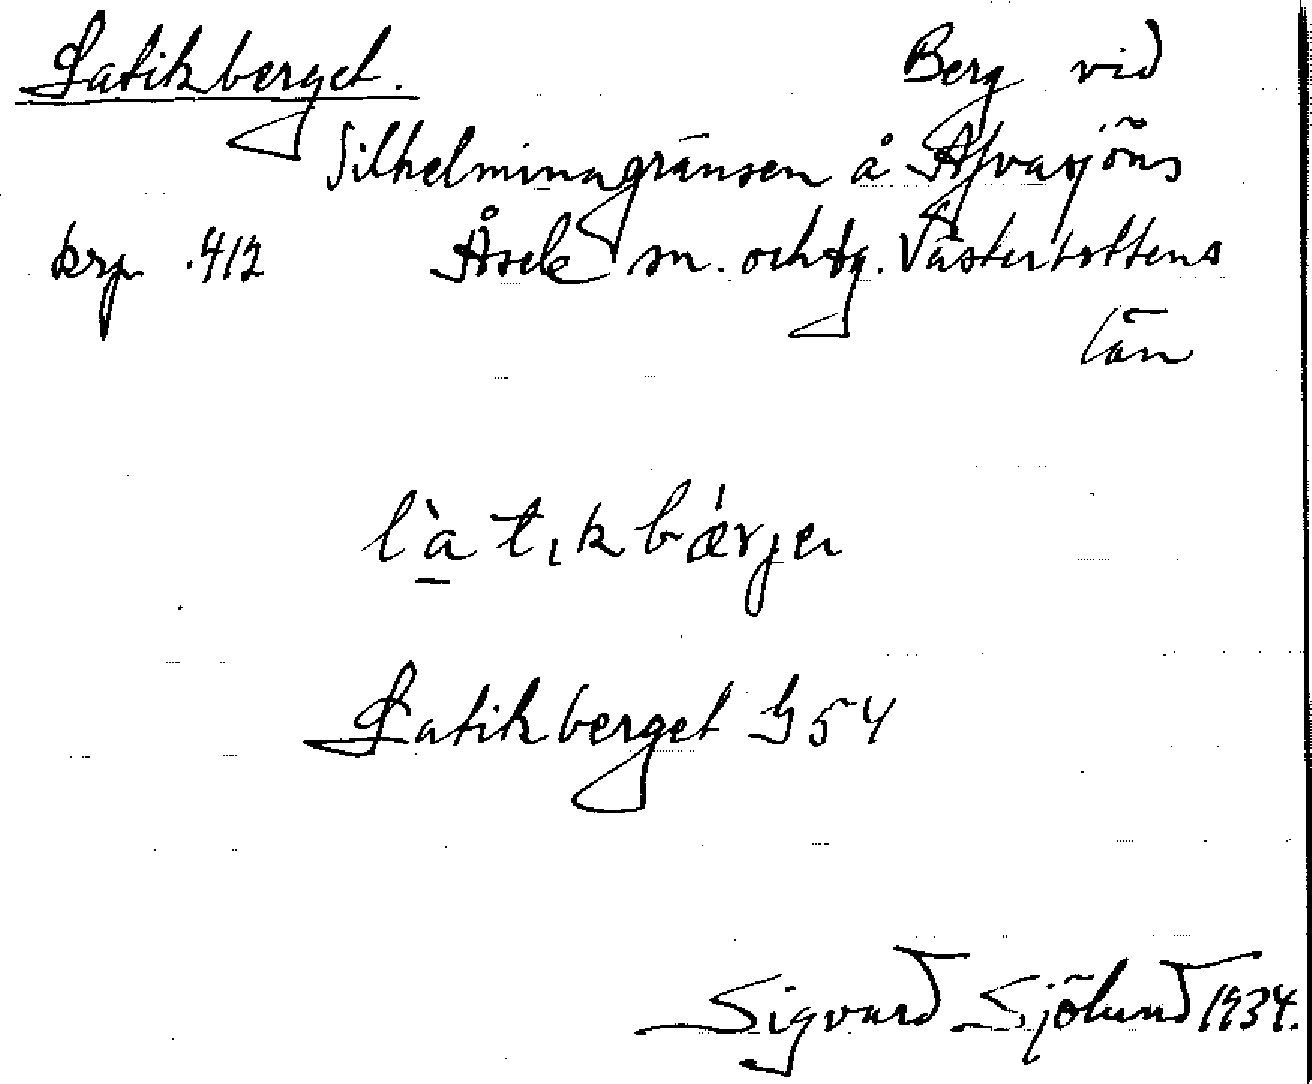 Latikberget. Berg vid
Vilhelminagränsen å Afvasjöns
krp 412 Åsele sn. och tg. Västerbottens
län
l`atıkbǽrjeı
Latikberget G54
Sigvard Sjölund 1934.